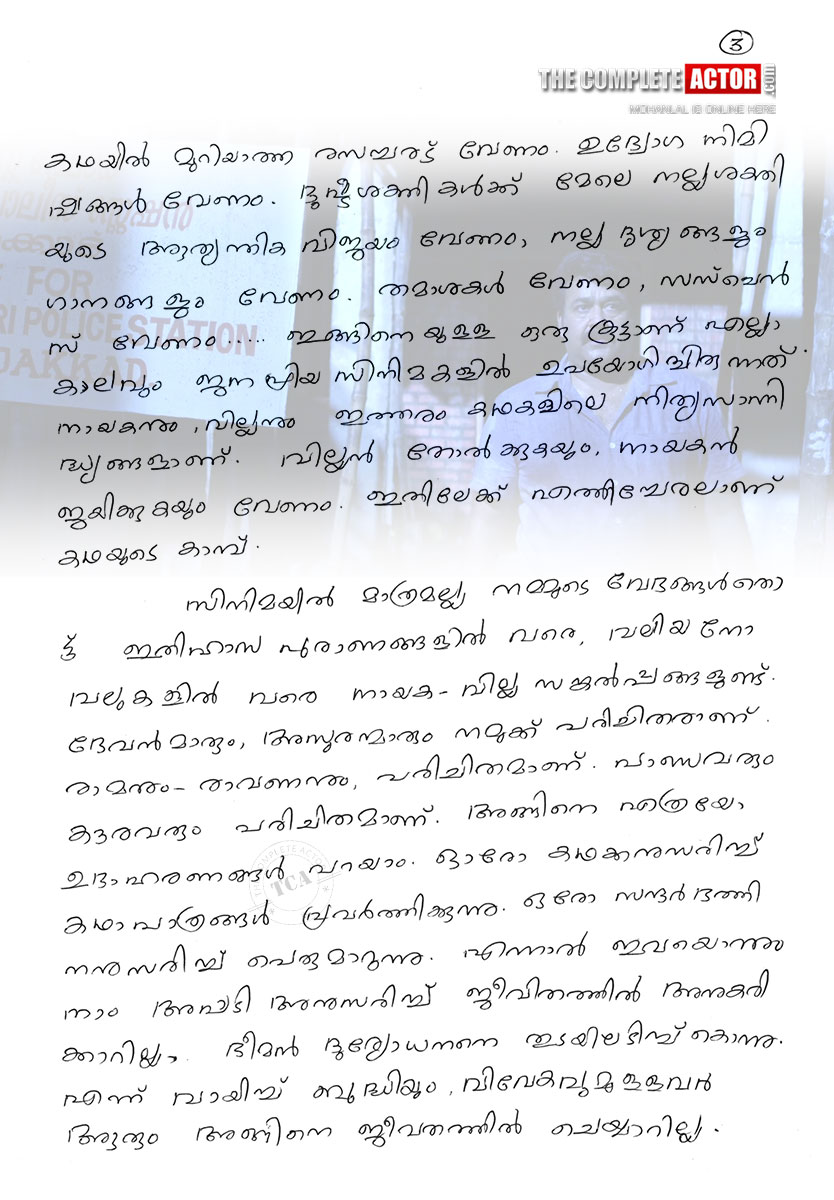 3
THE COMPLETE ACTOR .COM
MOHANLAL IS ONLINE HERE
കഥയിൽ മുറിയാത്ത രസച്ചരട് വേണം. ഉദ്വേഗ നിമി
ഷങ്ങൾ വേണം. ദുഷ്ടശക്തികൾക്ക് മേലെ നല്ലശക്തി
യുടെ ആത്യന്തിക വിജയം വേണം, നല്ല ദൃശ്യങ്ങളും
ഗാനങ്ങളും വേണം. തമാശകൾ വേണം, സസ്പെൻ
സ് വേണം..... ഇങ്ങിനെയുള്ള ഒരു കൂട്ടാണ് എല്ലാ
കാലവും ജനപ്രിയ സിനിമകളിൽ ഉപയോഗിച്ചിരുന്നത്.
നായകനും, വില്ലനും ഇത്തരം കഥകളിലെ നിത്യസാന്നി
ദ്ധ്യങ്ങളാണ്. വില്ലൻ തോൽക്കുകയും, നായകൻ
ജയിക്കുകയും വേണം. ഇതിലേക്ക് എത്തിച്ചേരലാണ്
കഥയുടെ കാമ്പ്.
സിനിമയിൽ മാത്രമല്ല നമ്മുടെ വേദങ്ങൾതൊ
ട്ട് ഇതിഹാസ പുരാണങ്ങളിൽ വരെ, വലിയ നോ
വലുകളിൽ വരെ നായക - വില്ല സങ്കൽപ്പങ്ങളുണ്ട്.
ദേവൻമാരും, അസുരന്മാരും നമുക്ക് പരിചിതരാണ്.
രാമനും - രാവണനും, പരിചിതമാണ്. പാണ്ഡവരും
കൗരവരും പരിചിതമാണ്. അങ്ങിനെ എത്രയോ
ഉദാഹരണങ്ങൾ പറയാം. ഓരോ കഥക്കനുസരിച്ച്
കഥാപാത്രങ്ങൾ പ്രവർത്തിക്കുന്നു. ഒരോ സന്ദർഭത്തി
നനുസരിച്ച് പെരുമാറുന്നു. എന്നാൽ ഇവയൊന്നും
നാം അപാടി അനുസരിച്ച് ജീവിതത്തിൽ അനുകരി
ക്കാറില്ല. ഭീമൻ ദുര്യോധനനെ തുടയിലടിച്ച് കൊന്നു.
എന്ന് വായിച്ച് ബുദ്ധിയും, വിവേകവുമുള്ളവർ
ആരും അങ്ങിനെ ജീവതത്തിൽ ചെയ്യാറില്ല.
FOR
RI POLICE STATION
JAKKAD
THE COMPLETE ACTOR
TCA